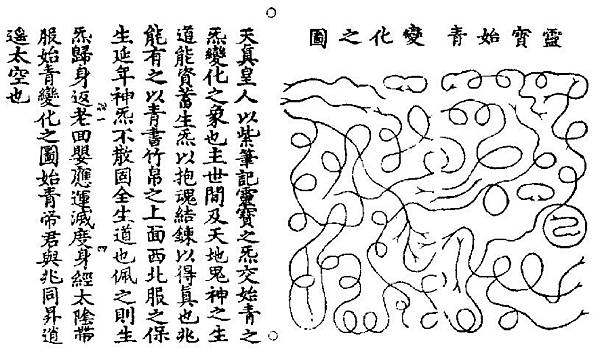 靈寶始青變化之圖
天真皇人以紫筆記靈寶之炁交始青之
炁變化之象也主世間及天地鬼神之生
道能資蓄生炁以抱魂結鍊以得真也兆
能有之以青書竹帛之上面西北服之保
生延年神炁不散固全生道也佩之則生
炁歸身返老囬嬰應運滅度身經太陰帶
服始青變化之圖始青帝君與兆同昇逍
遥太空也